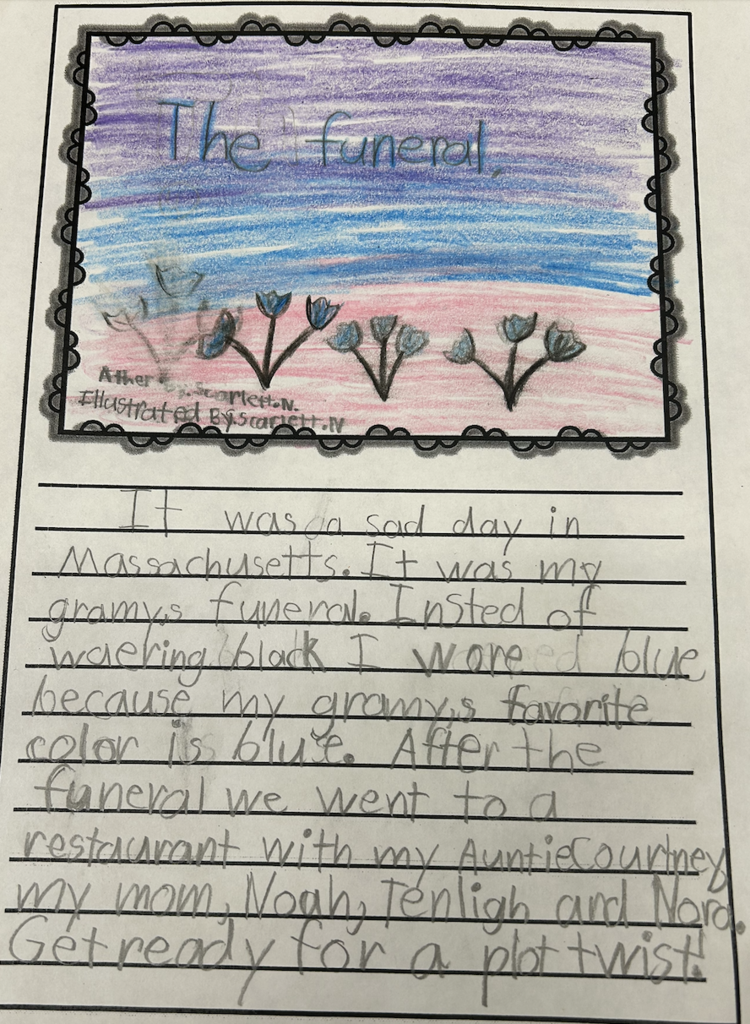 The funeral.
Ather By.Scarlett.N.
Illustrated By.Scarlett.N
It was a sad day in
Massachusetts. It was my
gramy,s funeral. Insted of
waering black I wore blue
because my gramy,s favorite
color is blue. After the
funeral we went to a
restaurant with my Auntie Courtney
my mom, Noah, Tenligh and Nora.
Get ready for a plot twist!